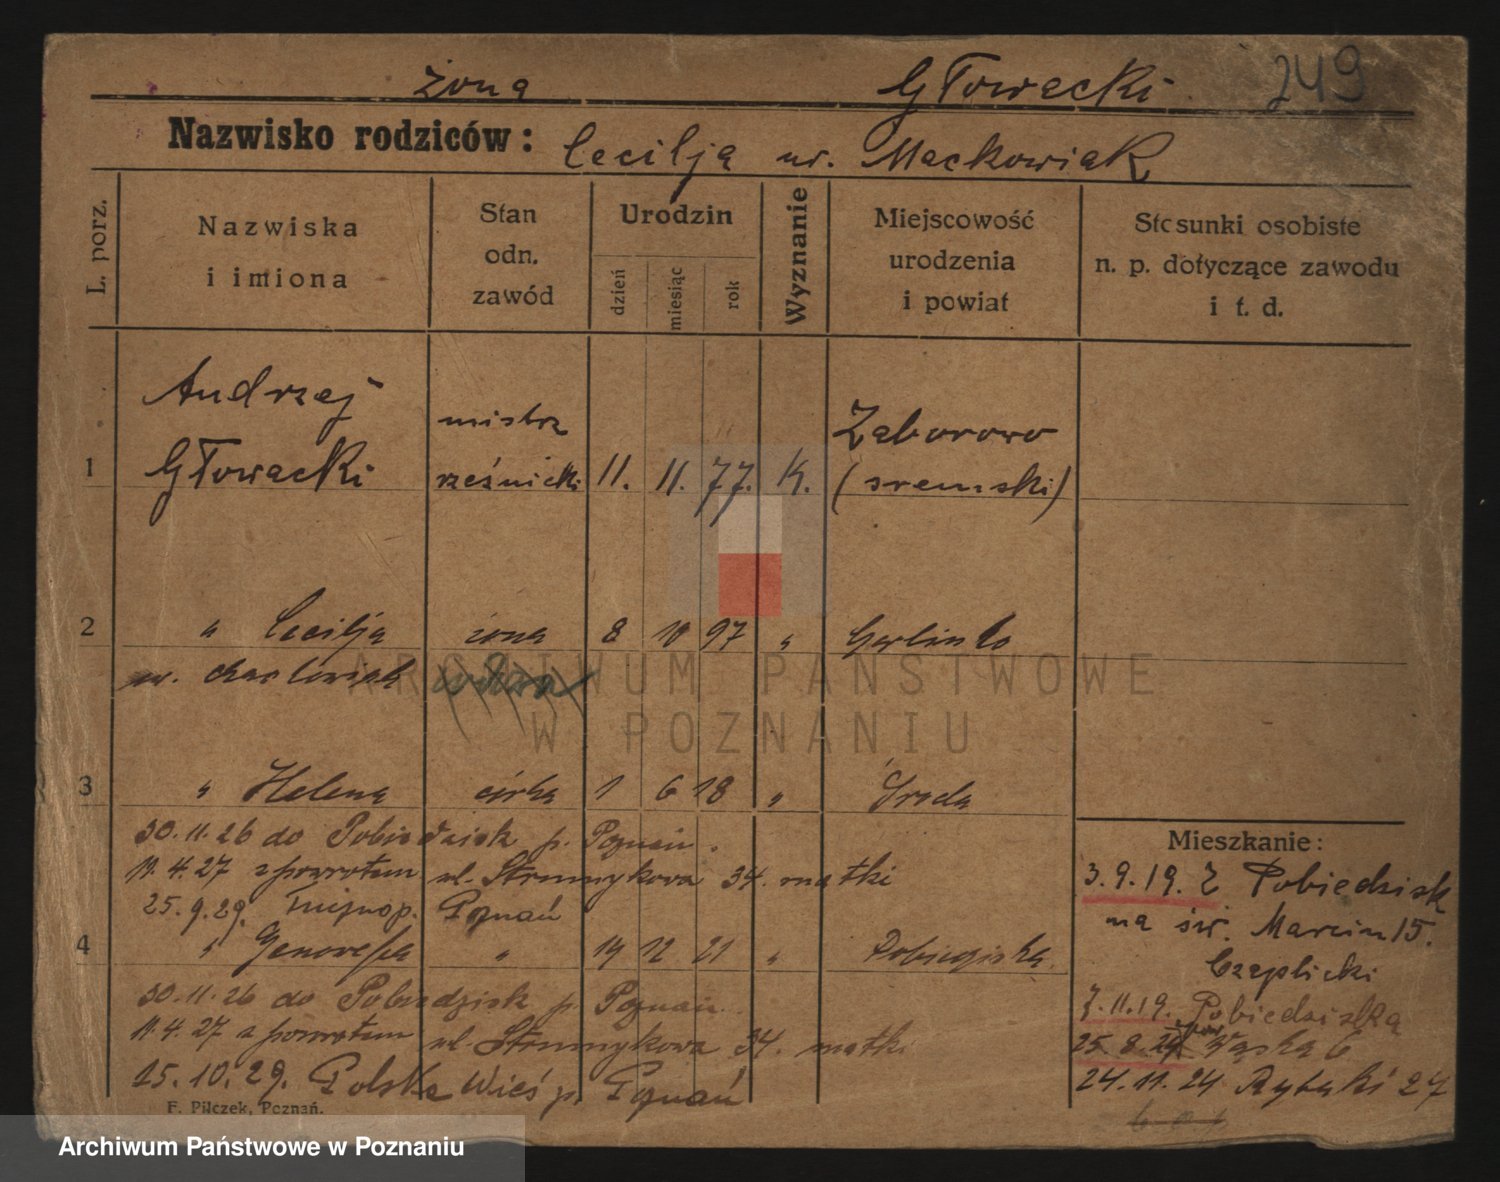 żona Głowacki 249
Nazwisko rodziców: Cecilja ur. Mackowiak
L. porz.
Nazwiska i imiona
Stan odn. zawód
Urodzin
dzień miesiąc rok
Wyznanie
Miejscowość urodzenia i powiat
Stosunki osobiste n. p. dotyczące zawodu i t. d.
Andrzej
mistrz Zaborowo
1 Głowacki rzeźnicki 11. 11. 77. K. (sremski)
2 " Cecilja żona 8 10 97 "
ur.
3 " Helena córka 1 6 18 " Środa
30.11.26 do Pobiedzisk p. Poznań.
11.4.27 z powrotem ul. Strumykowa 34. matki
25.9.29. p. Poznań
4 " Genowefa " 19 12 21 "
30.11.26 do Pobiedzisk p. Poznań
11.4.27 z powrotem ul. Strumykowa 34. matki
15.10.29. Polska Wieś p. Poznań
Mieszkanie:
3.9.19. Z Pobiedzisk
na św. Marcin 15.
Czaplicki
7.11.19. Pobiedziska
Wąska 6
24.11.24 Rybaki 27
F. Pilczek, Poznań.
ARCHIWUM PAŃSTWOWE
W POZNANIU
Archiwum Państwowe w Poznaniu